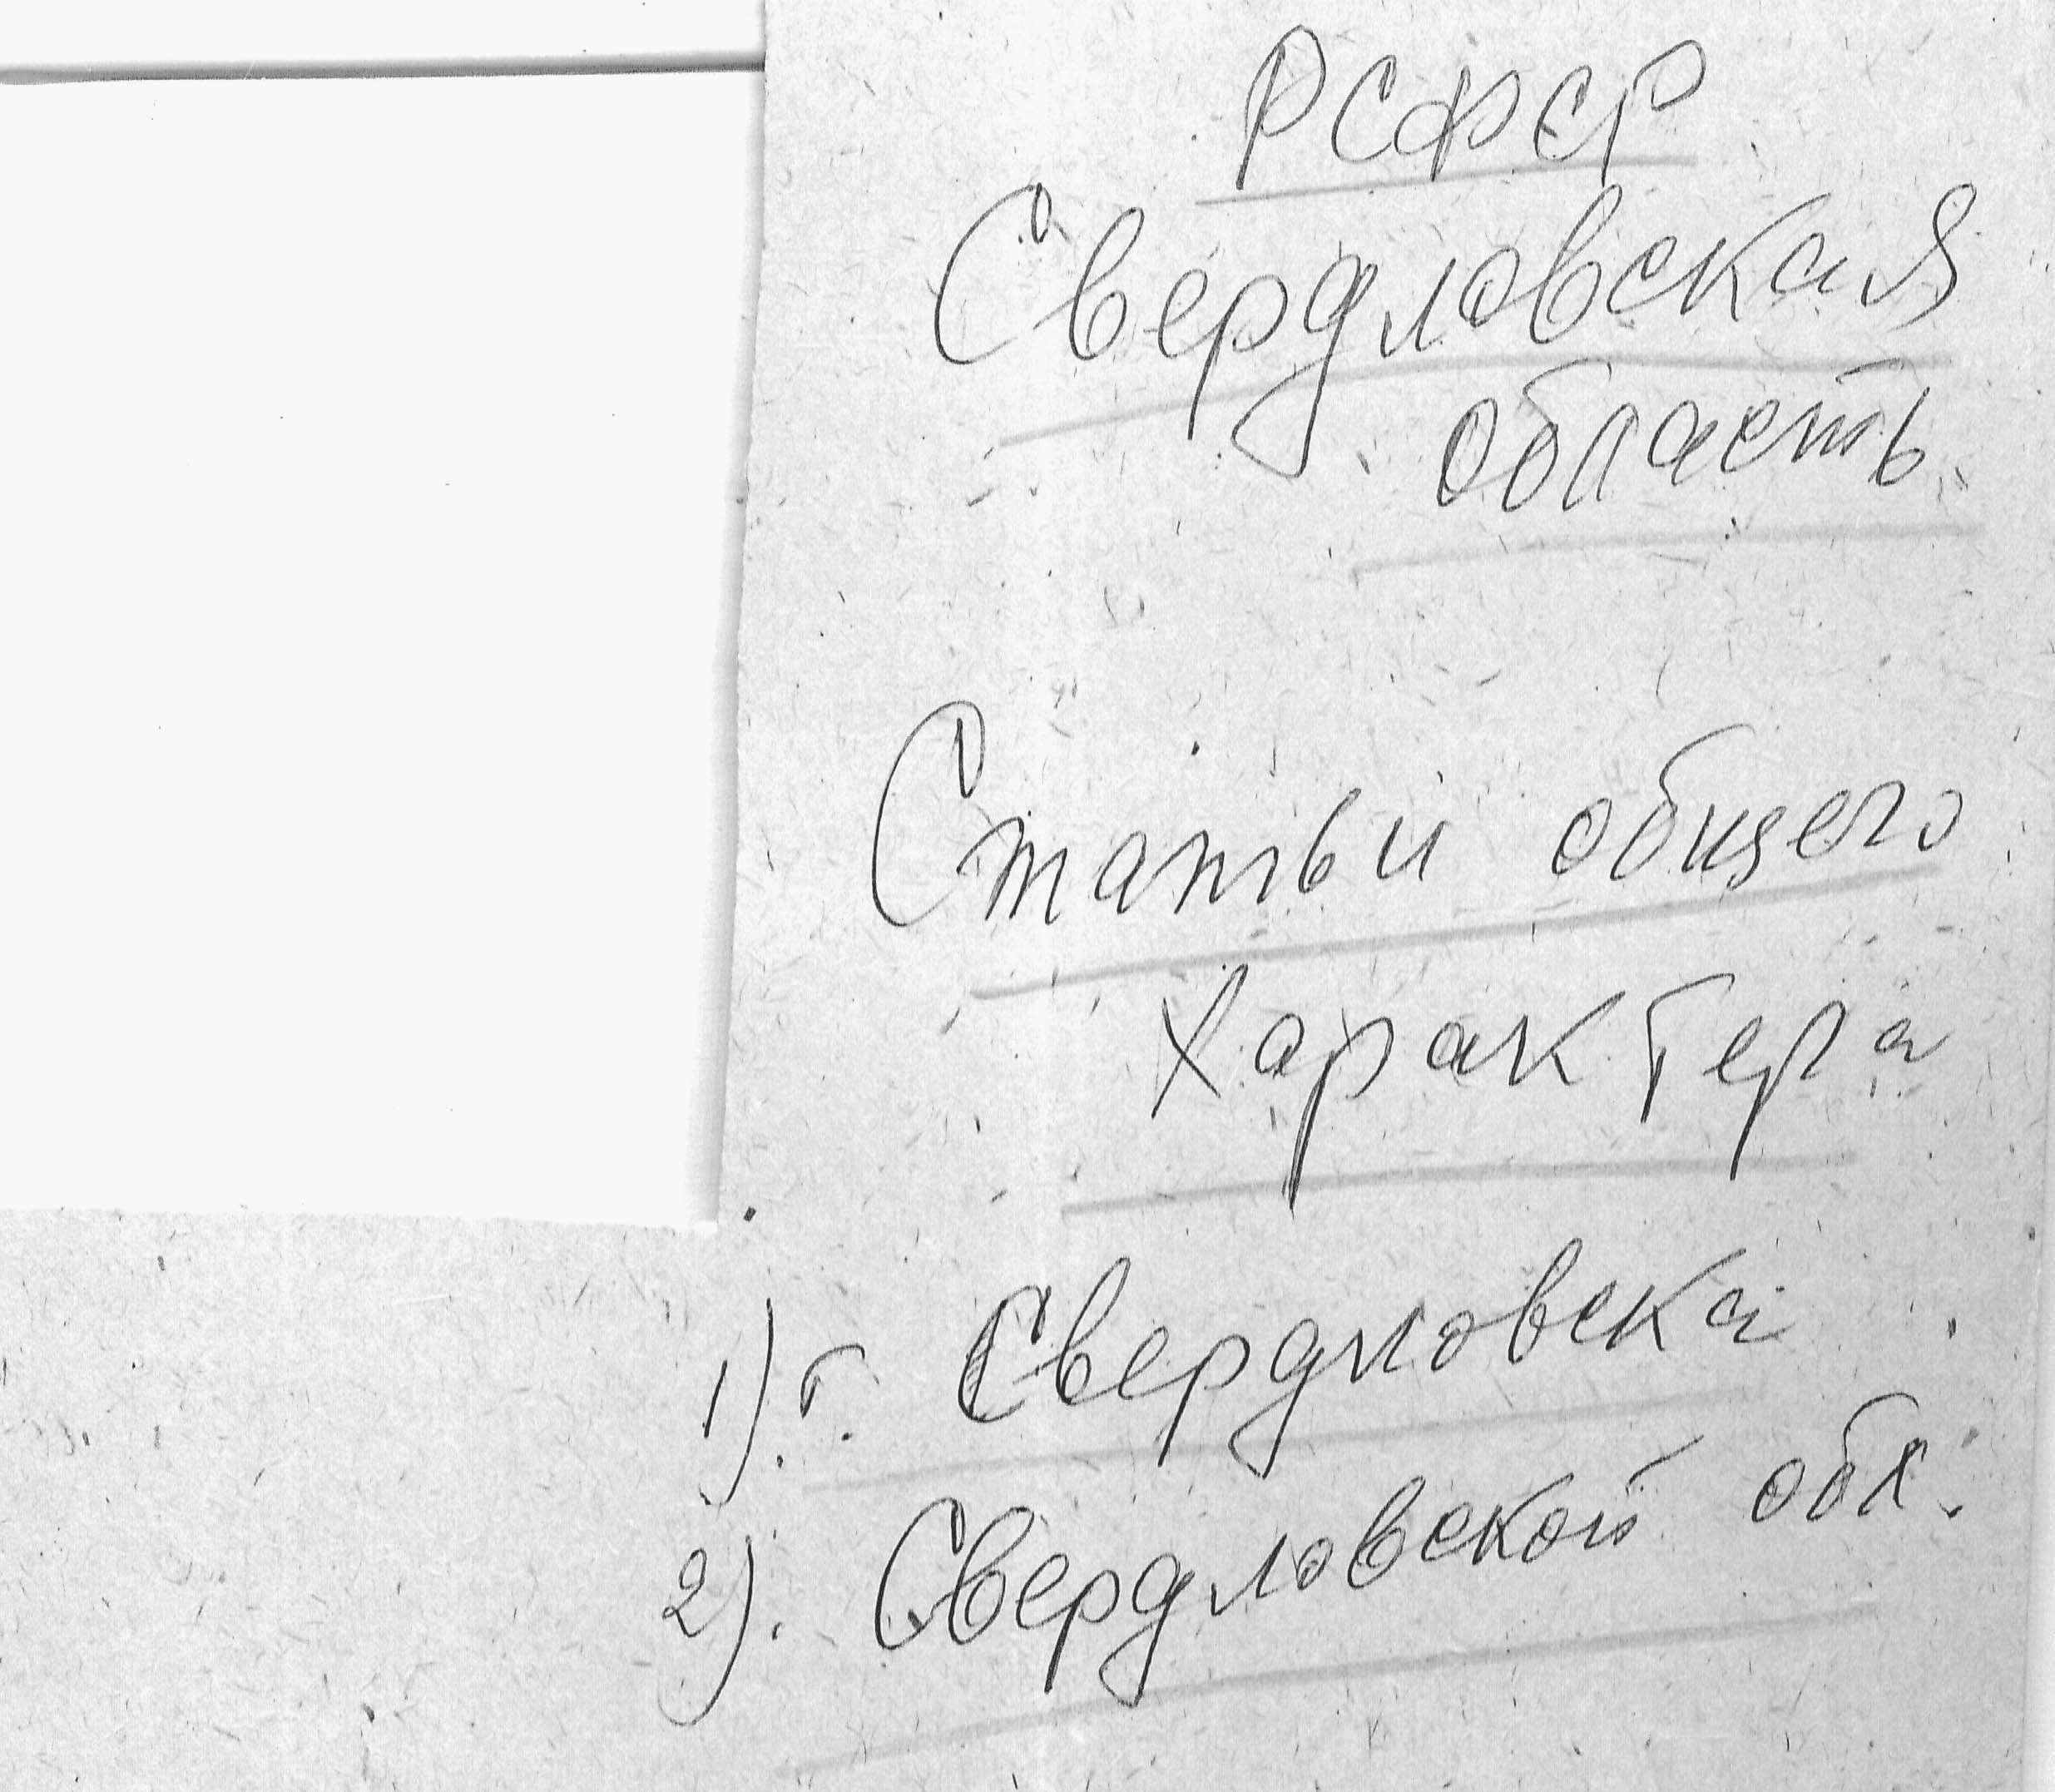 РСФСР
Свердловская
область
Статьи общего
характера
1). г. Свердловска
2). Свердловской обл.